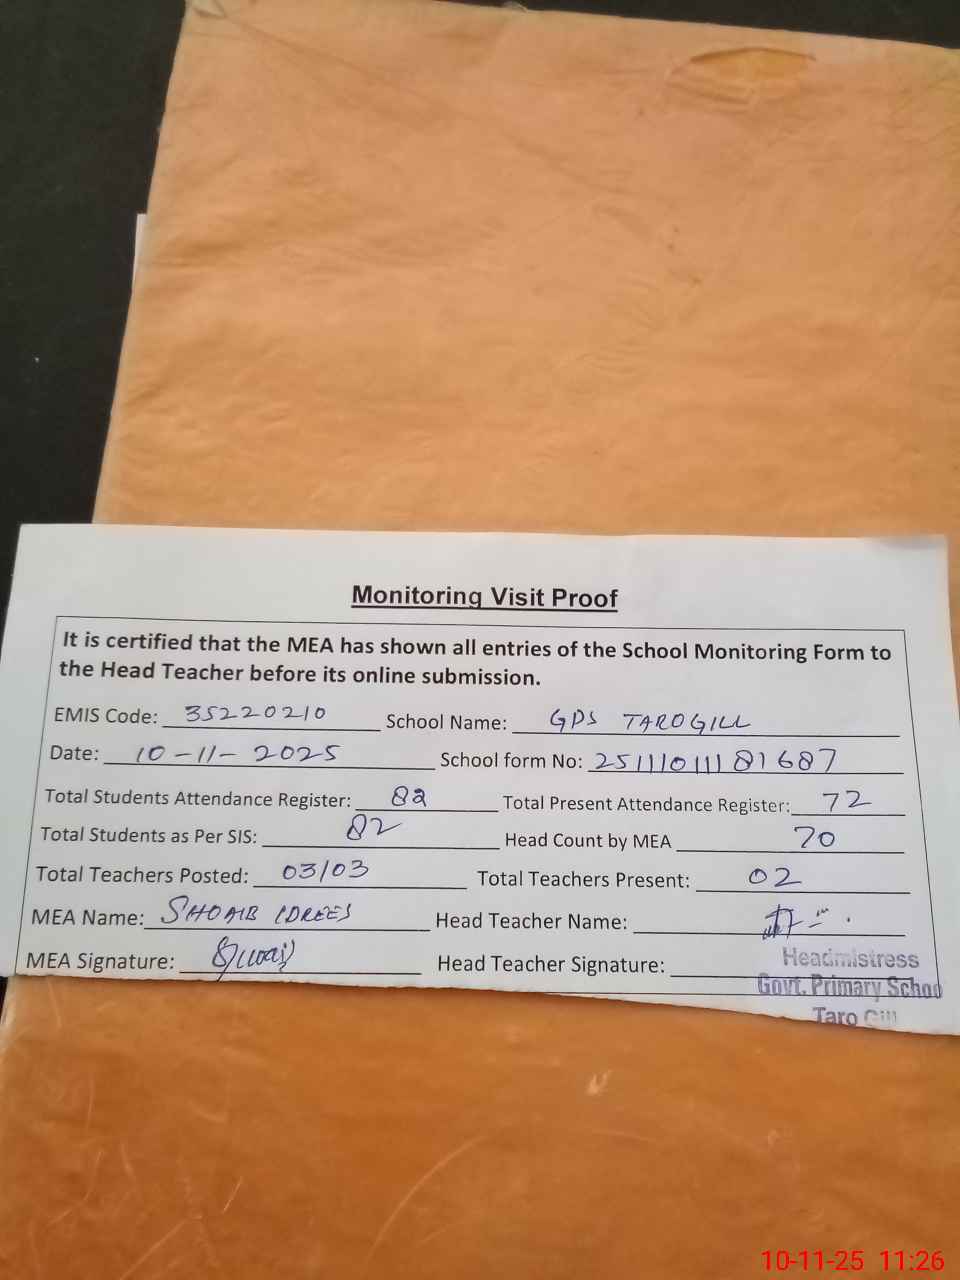 Monitoring Visit Proof
It is certified that the MEA has shown all entries of the School Monitoring Form to
the Head Teacher before its online submission.
EMIS Code: 35220210 School Name: GPS TAROGILL
Date: 10-11-2025 School form No: 25111011181687
Total Students Attendance Register: 82 Total Present Attendance Register: 72
Total Students as Per SIS: 82 Head Count by MEA 70
Total Teachers Posted: 03/03 Total Teachers Present: 02
MEA Name: SHOAIB IDREES Head Teacher Name:
MEA Signature: Head Teacher Signature:
Headmistress
Govt. Primary School
Taro Gill
10-11-25 11:26